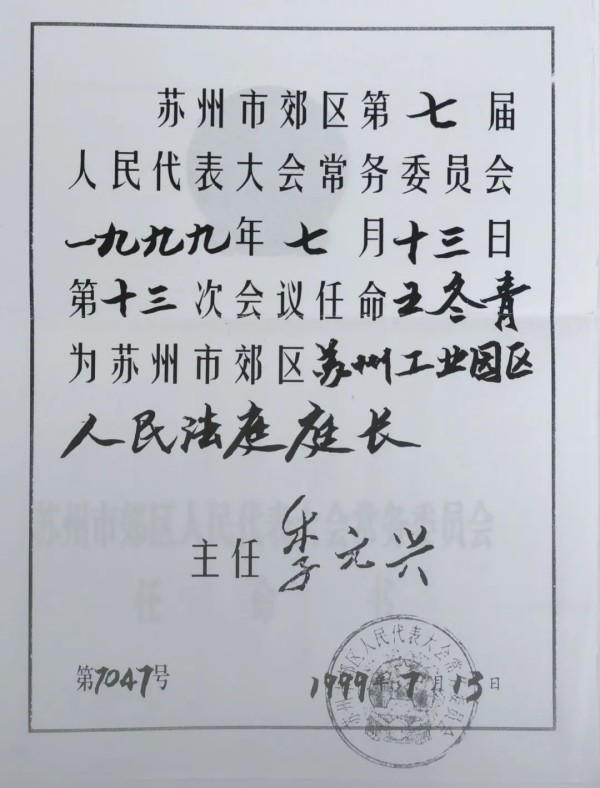 苏州市郊区第七届
人民代表大会常务委员会
一九九九年七月十三日
第十三次会议任命王冬青
为苏州市郊区苏州工业园区
人民法庭庭长
苏州市郊区人民代表大会常务委员会
任命书
主任 李元兴
苏州市郊区人民代表大会常务委员会
第7047号
1999年7月13日